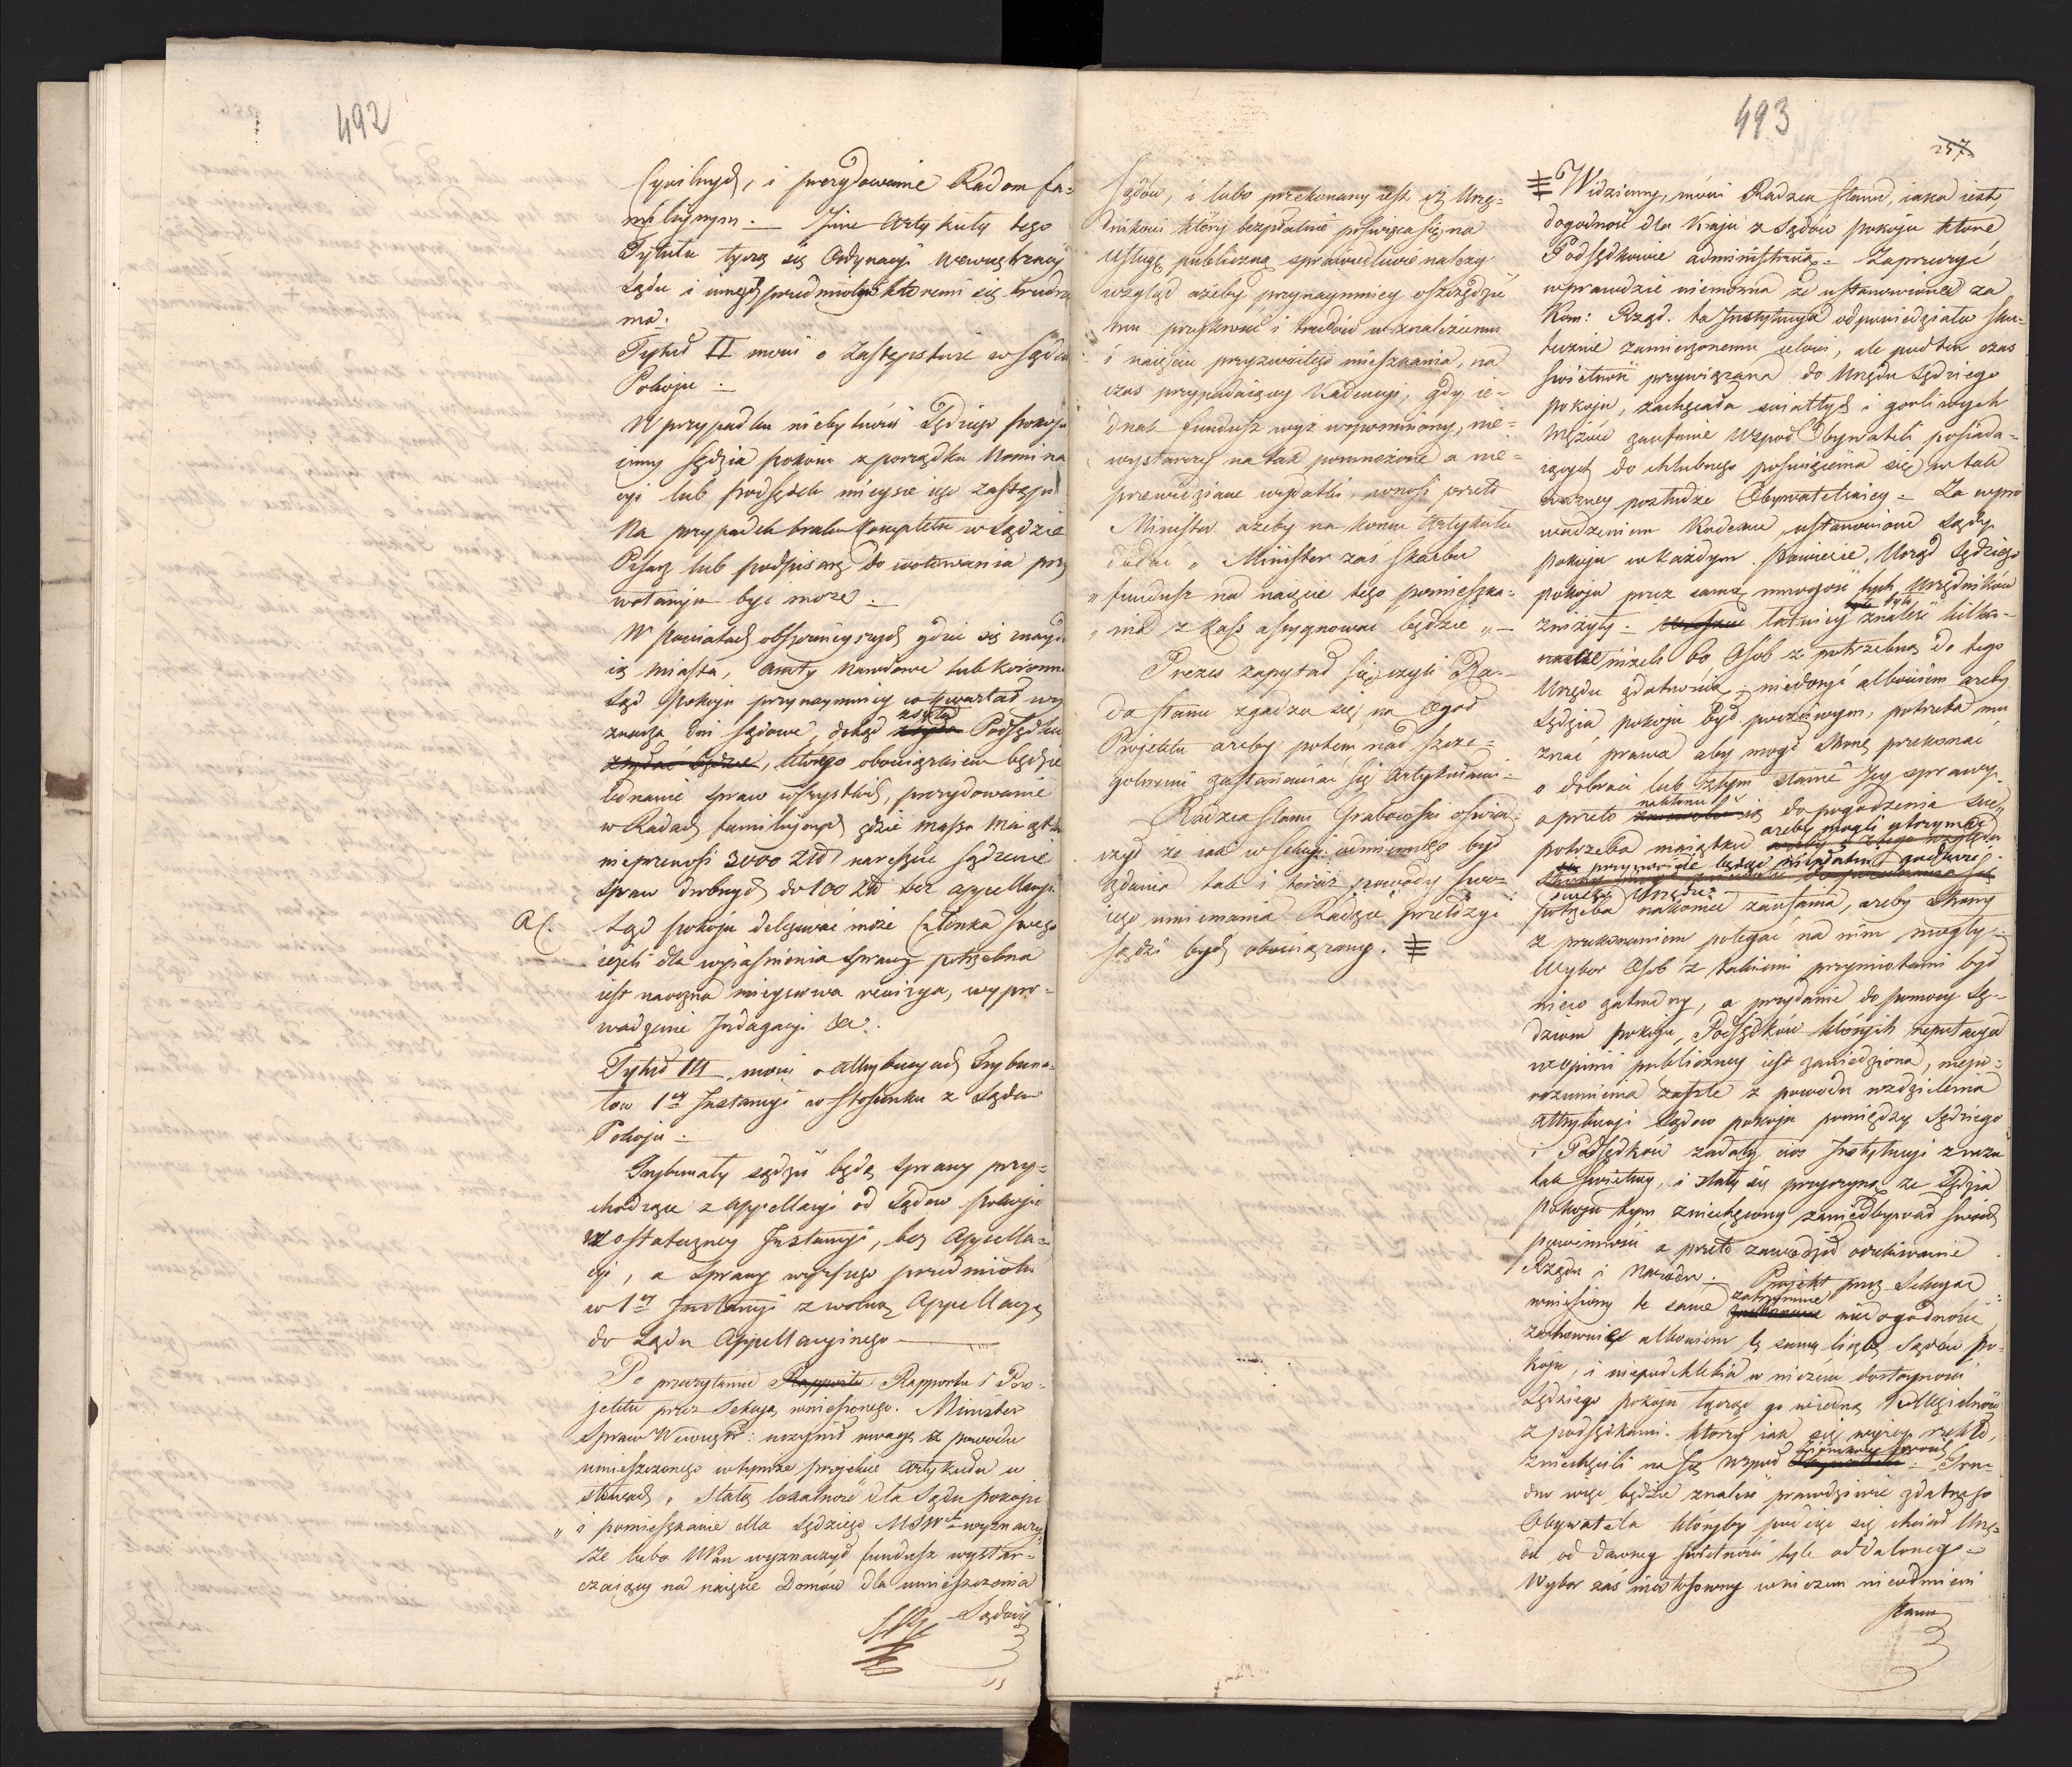 492
Cywilnych, i prezydowanie Radom fa-
milijnym. — Inne Artykuły tego
Tytułu tyczą się Ordynacyi wewnętrzney
Sądu i innych przedmiotów któremi się trudnić
ma.
Tytuł II mowi o Zastępstwie w Sądzie
Pokoju.
W przypadku niebytności Sędziego pokoju
inny Sędzia pokoju z porządku Nomina
cyi lub Podsędek mieysce iego zastąpi
Na przypadek braku kompletu w Sądzie
Pisarz lub podpisarz do wotowania przy
wołanym być może.
W Powiatach obszernieyszych gdzie się znaydu
ią Miasta, Amty Narodowe lub koronne
Sąd Pokoju przynaymniey co kwartał wy
znacza dni Sądowe, dokąd zsyła Podsędka
zsyłać będzie, którego obowiązkiem będzie
iednanie spraw wszystkich, prezydowanie
w Radach familijnych gdzie massa maiątku
nieprzenosi 3000 Złł nareszcie sądzenie
spraw drobnych do 100 Złł bez appellacyi.
Sąd pokoju delegować może Członka swego
ieżeli dla wyiaśnienia sprawy potrzebna
iest naoczna mieyscowa rewizya, wypro-
wadzenie Indagacyi &c.
Tytuł III mowi o attrybucyach Trybuna-
łow 1ey Instancyi w stosunku z Sądem
Pokoju.
Trybunały sądzić będą sprawy przy-
chodzące z appellacyi od Sądow pokoju
w ostateczney Instancyi, bez Appella-
cyi, a sprawy wyższego przedmiotu
w 1ey Instancyi z wolną Appellacyą
do Sądu Appellacyinego —
Po przeczytaniu Rapportu Rapportu i Pro-
jektu przez Sekcyą wniesionego. Minister
Spraw Wewnętr: uczynił uwagę z powodu
umieszczonego w tymże projekcie artykułu w
słowach „ Stałą lokalność dla Sądu pokoju
„ i pomieszkanie dla Sędziego MSW wyznaczy,
że lubo Pan wyznaczył fundusz wystar-
czaiący na naięcie Domów dla umieszczenia
Sądów
493
257
Sądów, i lubo przekonany iest iż Urzę-
dnikowi który bezpłatnie poświęca się na
usługę publiczną sprawiedliwie należy
wzgląd ażeby przynaymniey oszczędzić
mu przykrości i trudów w znalezieniu
i naięciu przyzwoitego mieszkania, na
czas przypadaiącey Kadencyi, gdy ie-
dnak fundusz wyż wspomniony, nie-
wystarczy na tak pomnożone a nie-
przewidziane wydatki, wnosi przeto
Minister ażeby na końcu Artykułu
dodać „ Minister zaś Skarbu
„ fundusz na naięcie tego pomieszka-
„ nia z Kass assygnować będzie „ —
Prezes zapytał się czyli Ra-
da Stanu zgadza się na ogół
Projektu ażeby potem nad szcze-
gólnemi zastanawiać się Artykułami —
Radzca Stanu Grabowski oświad-
czył że iak w Sekcyi odmiennego był
zdania tak i teraz powody swo-
iego mniemania Radzie przełożyć
sądzi bydź obowiązany.
Widziemy, mówi Radzca Stanu, iaka iest
dogodność dla Kraju z Sądów pokoju które
Podsędkowie administruią. — Zaprzeczyć
wprawdzie niemożna że ustanowiona za
Kom: Rząd. ta Instytucya odpowiedziała sku-
tecznie zamierzonemu celowi, ale podten czas
świetność przywiązana do Urzędu Sędziego
pokoju, zachęcała światłych i gorliwych
Mężów zaufanie Wspoł Obywateli posiada-
iących do chlubnego poświęcenia się w tak
ważney posłudze Obywatelskiey. — Za wpro
wadzeniem Kodexu, ustanowione Sądy
pokoju w każdym Powiecie, Urząd Sędziego
pokoju przez samą mnogość tych Urzędników
zniżyły. — łatwiey znaleść kilka-
naście niżeli 60 Osób z potrzebną do tego
Urzędu zdatnością; niedosyć albowiem ażeby
Sędzia pokoju był poczciwym, potrzeba mu
znać prawa aby mógł Stronę przekonać
o dobroci lub złym stanie iey sprawy,
a przeto nakłonić ią do pogodzenia się,
potrzeba maiątku ażeby mogli utrzymać
się przyzwoicie będąc niepłatni godność
swego Urzędu —
potrzeba nakoniec zaufania, ażeby Strony
z przekonaniem polegać na nim mogły.
Wybor Osob z takiemi przymiotami był
nieco zatrudny, a przydanie do pomocy Sę-
dziom pokoju, Podsędków których reputacya
w opinii publiczney iest zawiedziona, niepo-
rozumienia zaszłe z powodu rozdzielenia
attrybucyi Sądow pokoju pomiędzy Sędziego
i Podsędków zadały cios Instytucyi zrazu
tak świetney, i stały się przyczyną że Sędzia
pokoju tym zniechęcony zaniedbywał swoich
powinności a przeto zawodził oczekiwanie
Rządu i Narodu. — Projekt przez Sekcyą
wniesiony te same zatrzymuie niedogodności
zachowuie albowiem tę samą liczbę Sądów po-
koju, i niepodchlebia w niczem dostoyności
Sędziego pokoju łącząc go w iedną Kollegialność
z podsędkami. którzy iak się wyżey rzekło,
zniechęcili na się Wspoł Ziomkow swoich. — Tru-
dno więc będzie znaleść prawdziwie zdatnego
Obywatela któryby podiąć się chciał Urzę-
du od dawney świetności tyle oddalonego —
Wybor zaś niestosowny w niczem nieodmieni
stanu